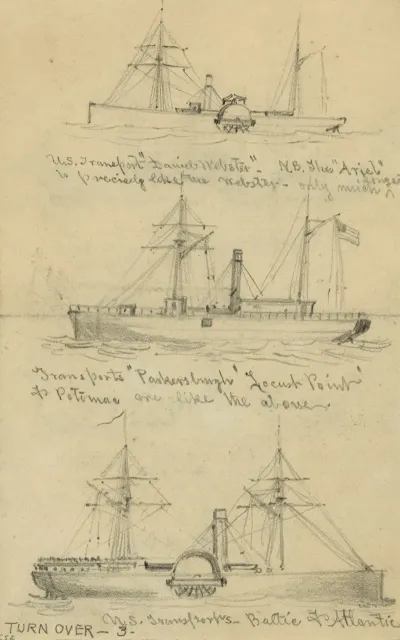 U.S. Transport "Daniel Webster" - N.B. The "Ariel"
is precisely like the Webster - only much longer
Transports "Parkersburgh" "Locust Point"
& Potomac are like the above
U.S. Transports - Baltic & Atlantic
TURN OVER - 3 -